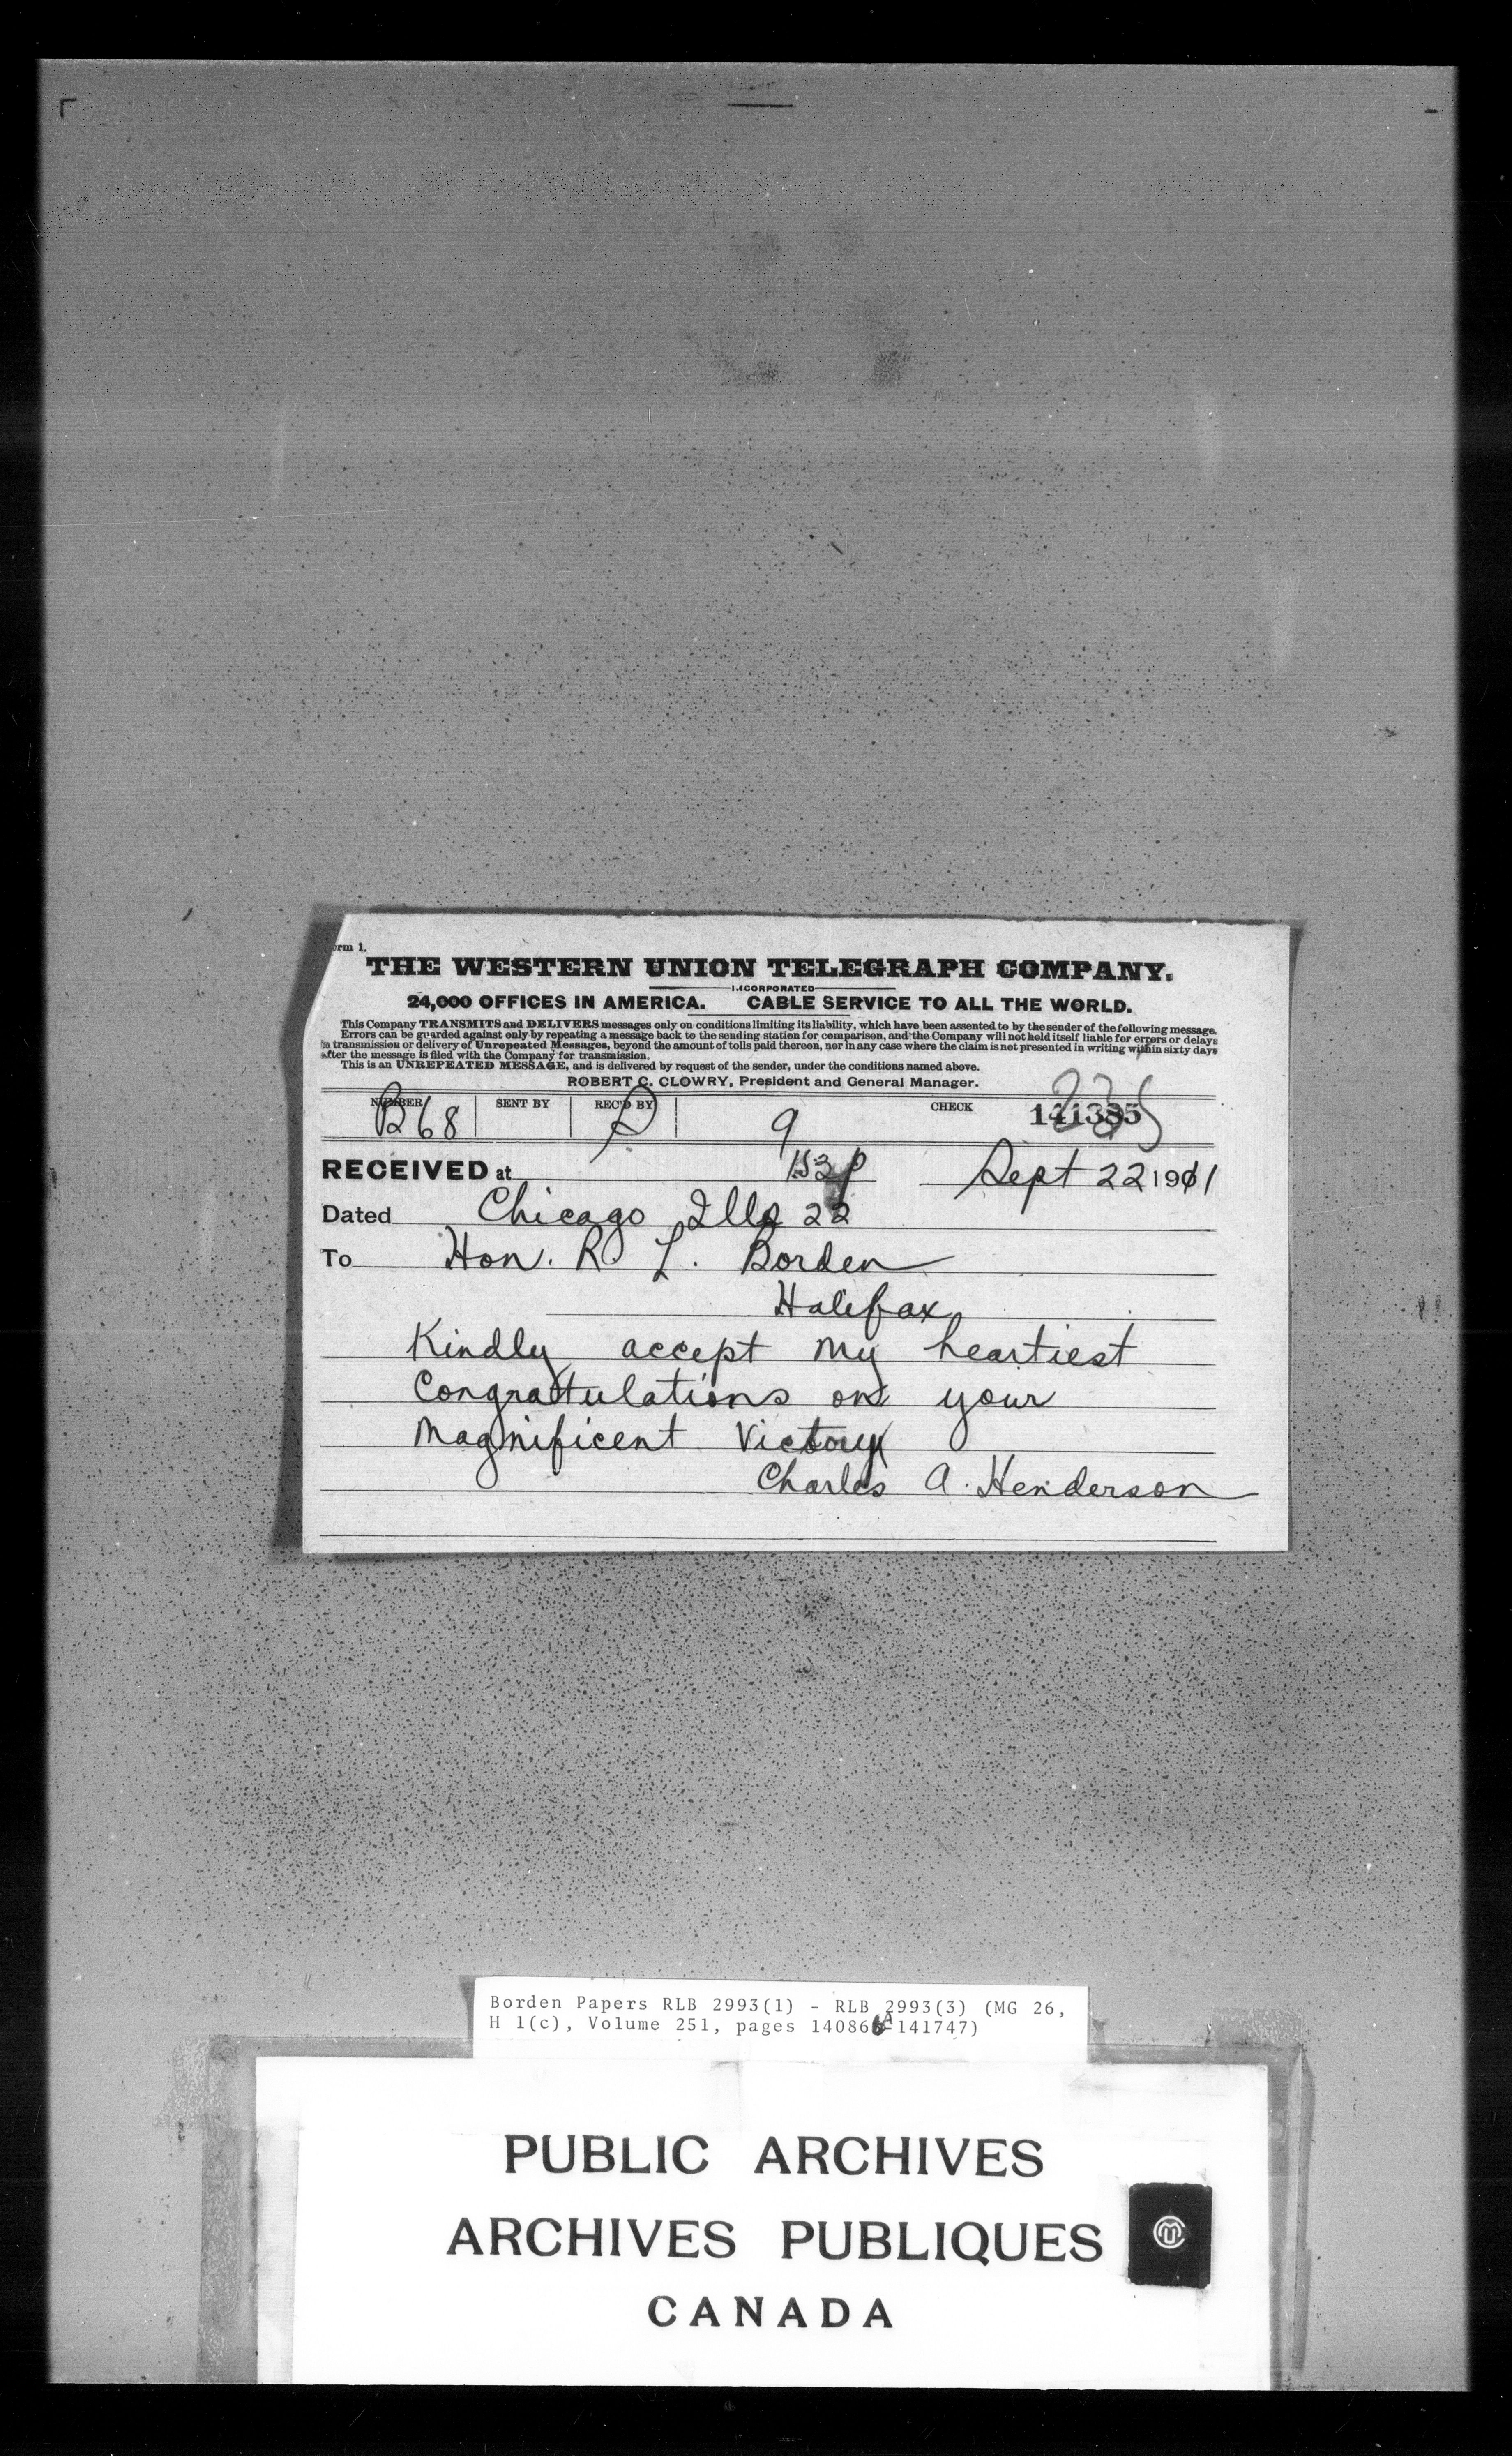 orm 1.
THE WESTERN UNION TELEGRAPH COMPANY.
INCORPORATED
24,000 OFFICES IN AMERICA. CABLE SERVICE TO ALL THE WORLD.
This Company TRANSMITS and DELIVERS messages only on conditions limiting its liability, which have been assented to by the sender of the following message.
Errors can be guarded against only by repeating a message back to the sending station for comparison, and the Company will not hold itself liable for errors or delays
in transmission or delivery of Unrepeated Messages, beyond the amount of tolls paid thereon, nor in any case where the claim is not presented in writing within sixty days
after the message is filed with the Company for transmission.
This is an UNREPEATED MESSAGE, and is delivered by request of the sender, under the conditions named above.
ROBERT C. CLOWRY, President and General Manager.
NUMBER SENT BY REC'D BY CHECK
B68 9 141385 235
RECEIVED at 153p Sept 22 1911
Dated Chicago Ills 22
To Hon. R. L. Borden
Halifax
Kindly accept my heartiest
Congratulations on your
Magnificent Victory
Charles A. Henderson
Borden Papers RLB 2993(1) - RLB 2993(3) (MG 26,
H 1(c), Volume 251, pages 140866A-141747)
PUBLIC ARCHIVES
ARCHIVES PUBLIQUES
CANADA